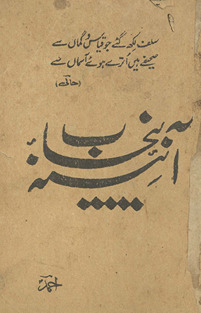 سلف لکھ گئے جو قیاس و گماں سے
صحیفے ہیں اُترے ہوئے آسماں سے
(حالی)
آئینہ پنجاب